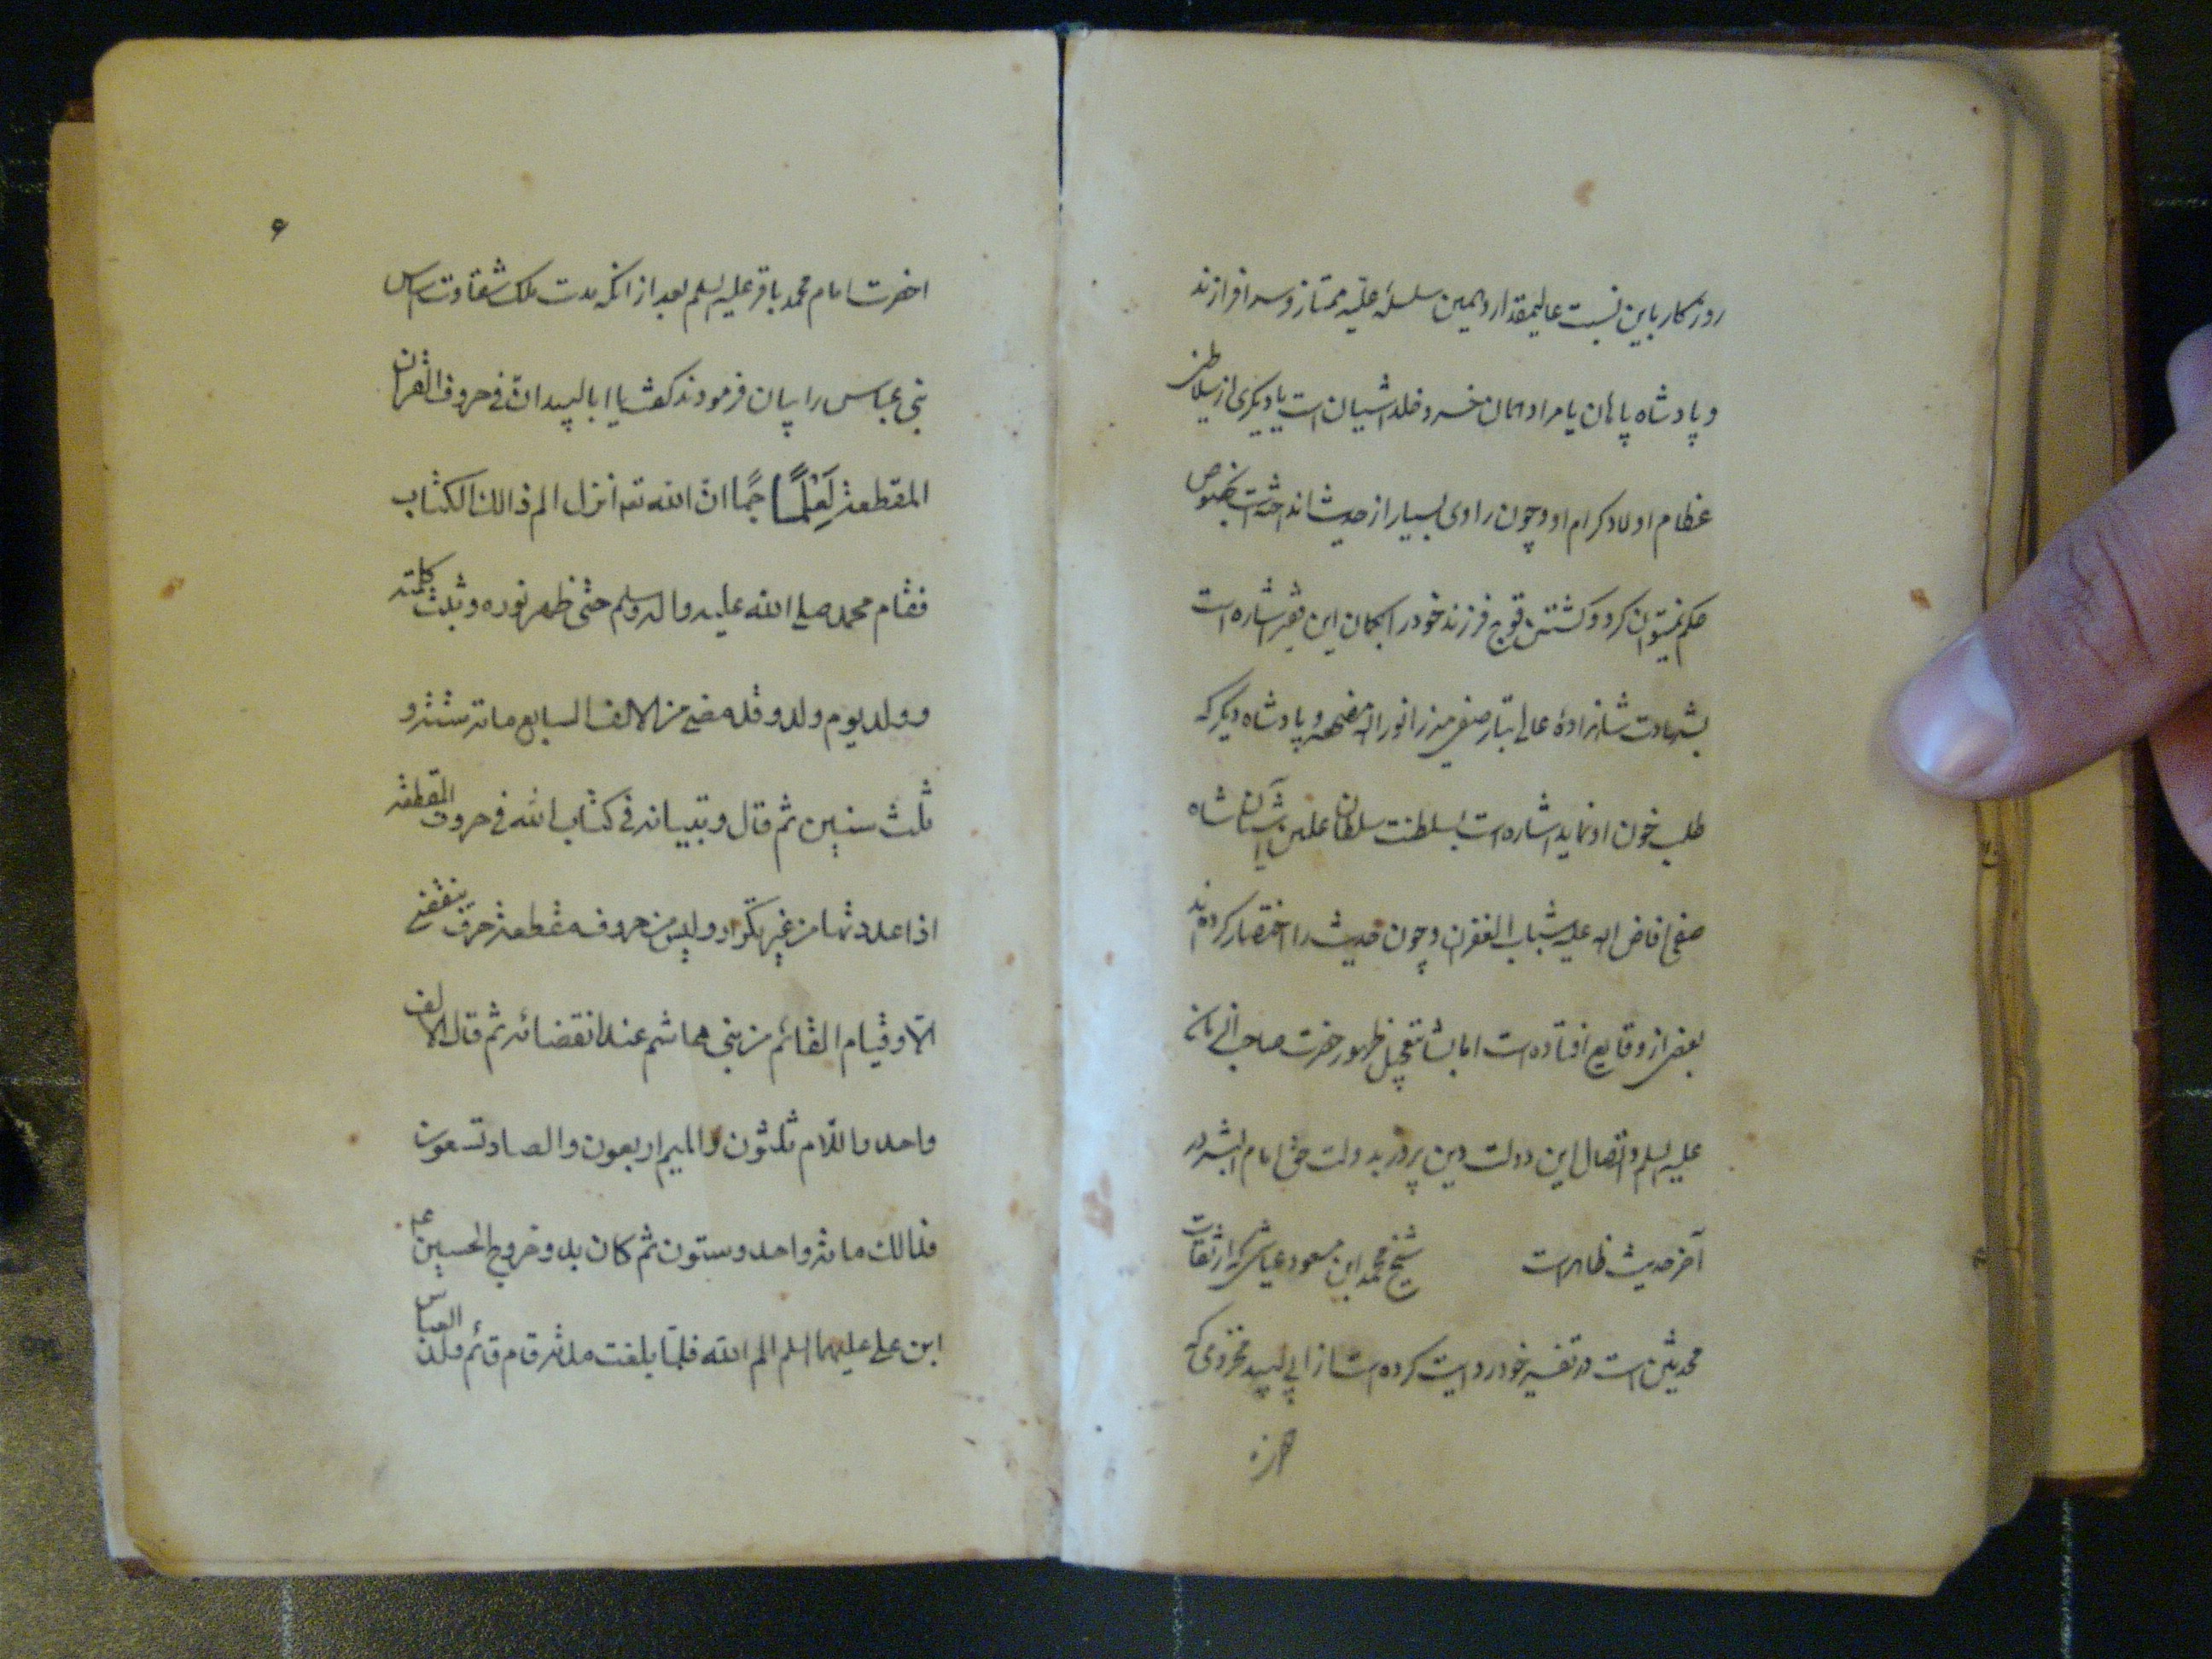 روزکار باین نسبت عالیمقدار و بمین سلسلهٔ علیّه ممتاز و سرافرازند
و پادشاه یا همان یا مراد همان خسرو خلد اشیان است یا دیکری از سلاطین
عظام اولاد کرام او و چون راوی بسیار از حدیث انداخته است بخصوص
حکم نمیتوان کرد و کشتن قوچ فرزند خود را بکمان این فقیر اشاره است
بشهادت شاهزادهٔ عالی تبار صفی میرزا نور الله مضجعه و پادشاه دیکر که
طلب خون او نماید اشاره است بسلطنت سلطان علیین آشیان شاه
صفی افاض الله علیه شبابیب الغفران و چون حدیث را اختصار کرده‌اند
بعضی از وقایع افتاده است اما بشارت تعجیل ظهور حضرت صاحب الزمان
علیه السلم و اتصال این دولت دین پرور بدولت حق امام البشر در
آخر حدیث ظاهر است شیخ محمد ابن مسعود عیاشی که از ثقات
محدثین است در تفسیر خود روایت کرده است از ابی لبید مخزومی که
انحضرت امام محمد باقر علیه السلم بعد از انکه مدت ملک شقاوت اساس
بنی عباس را بیان فرمودند کفت یا ابا لبید ان فی حروف القران
المقطعة لَعِلْمًا جمًا ان الله تعه انزل الم ذالك الكتاب
فقام محمد صلی الله علیه و اله وسلم حتی ظهر نوره و ثبتت کلمته
و ولد یوم ولد و قد مضی من الالف السابع مائة سنة و
ثلث سنین ثم قال و تبیانه فی کتاب الله فی حروف المقطعة
اذا عددتها من غیر تکرار و لیس من حروف مقطعة حرف ینقضی
الا و قیام القائم من بنی هاشم عند انقضائه ثم قال الالف
واحد و اللام ثلثون و المیم اربعون و الصاد تسعون
فذالك مائة و واحد و ستون ثم کان بدو خروج الحسین
ابن علی علیهما السلم الم الله فلما بلغت مدته قام قائم ولد العباس